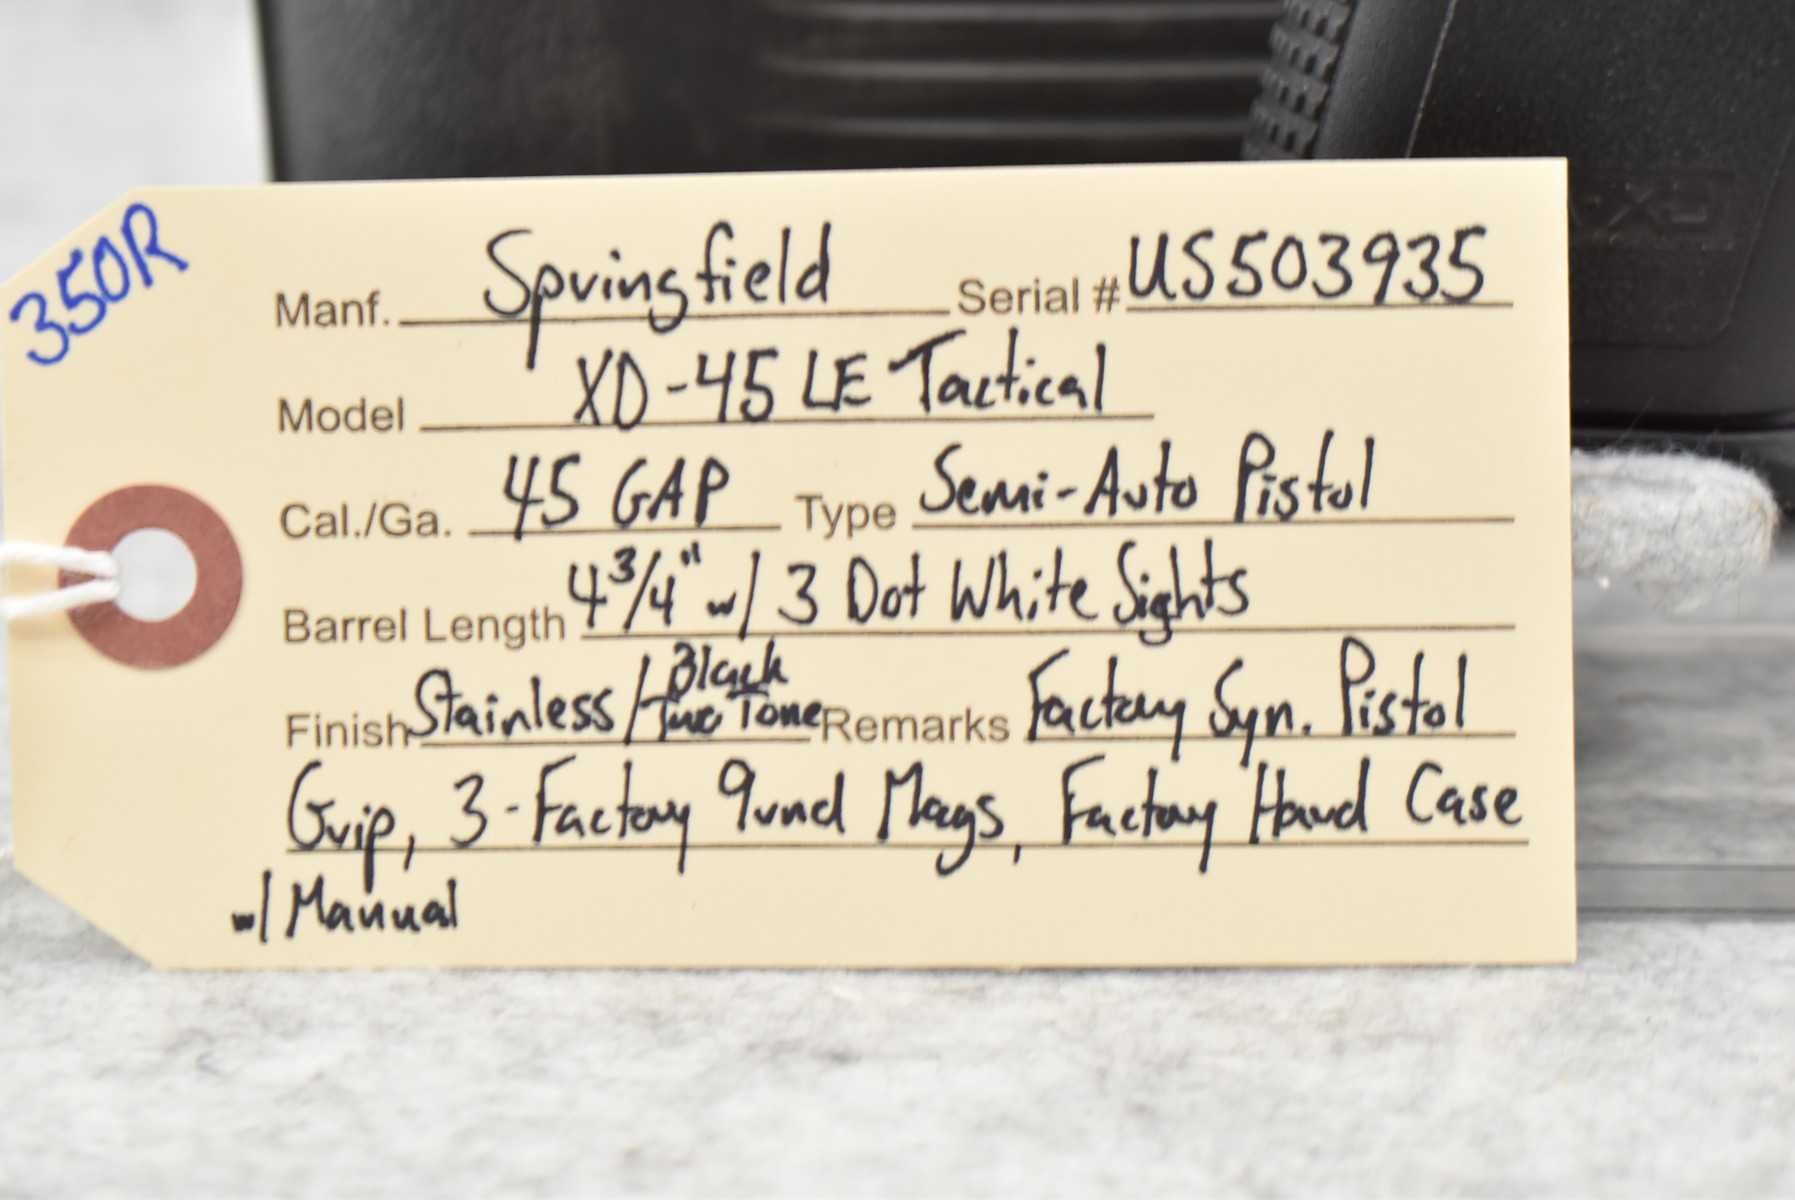 350R
Manf. Springfield Serial # US503935
Model XD-45 LE Tactical
Cal./Ga. 45 GAP Type Semi-Auto Pistol
Barrel Length 4 3/4" w/ 3 Dot White Sights
Finish Stainless/Black Two Tone Remarks Factory Syn. Pistol
Grip, 3-Factory 9rnd Mags, Factory Hard Case
w/ Manual